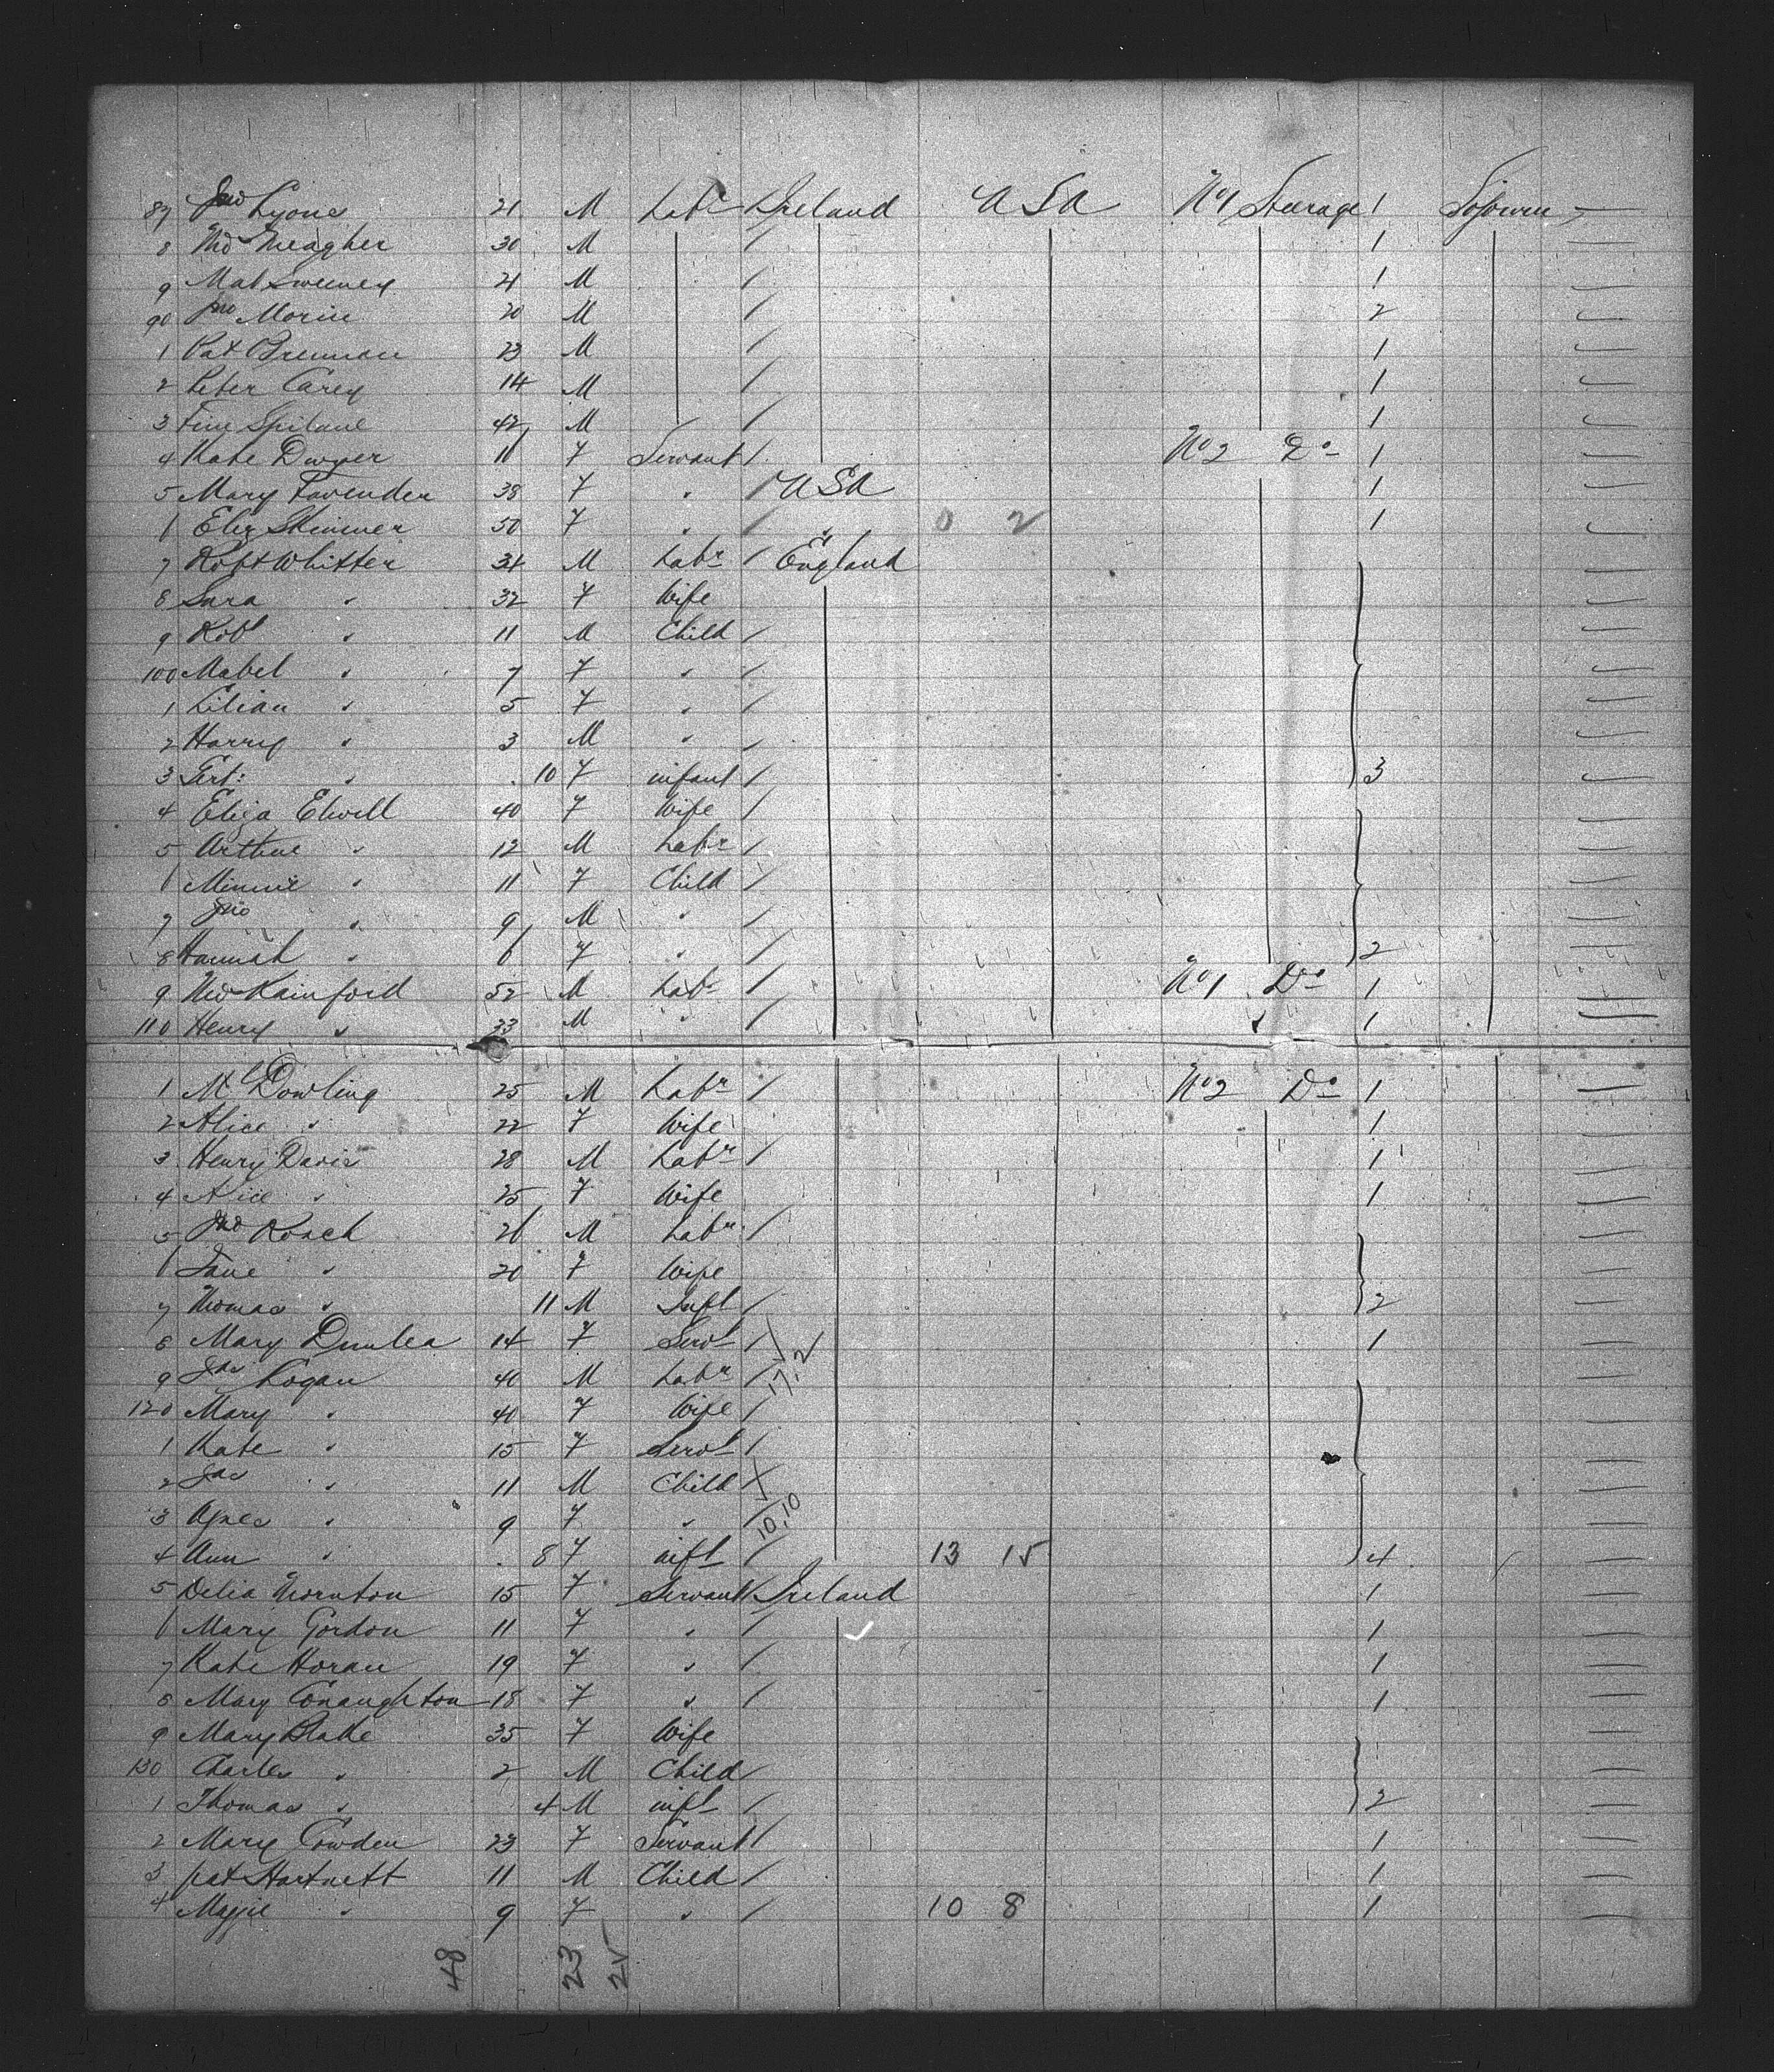 87 Jno Lyons 21 M Labr Ireland USA No 1 Steerage 1 Sojourn
8 Thos Meagher 30 M 1
9 Mat Sweeney 21 M 1
90 Jno Morin 20 M 2
1 Pat Brennan 23 M 1
2 Peter Carey 14 M 1
3 Tim Spilane 42 M 1
4 Kate Dwyer 11 F Servant No 2 Do 1
5 Mary Lavender 38 F " USA 1
6 Eliz Skinner 50 F " " 0 2 1
7 Robt Whitter 34 M Labr England
8 Sara " 32 F Wife
9 Robt " 11 M Child
100 Mabel " 7 F "
1 Lilian " 5 F "
2 Harry " 3 M "
3 Gert: " 10 F infant 3
4 Eliza Elwell 40 F Wife
5 Arthur " 12 M Labr
6 Minnie " 11 F Child
7 Jno " 9 M "
8 Hannah " 6 F " 2
9 Rainford 52 M Labr No 1 Do 1
110 Henry " 33 M " 1
1 Ml Dowling 25 M Labr No 2 Do 1
2 Alice " 22 F Wife 1
3 Henry Davis 28 M Labr 1
4 Alice " 25 F Wife 1
5 Jno Roach 26 M Labr
6 Jane " 20 F Wife
7 Thomas " 11 M Inft 2
8 Mary Dunlea 14 F Servt 1
9 Jas Logan 40 M Labr 17,2
120 Mary " 40 F Wife
1 Kate " 15 F Servt
2 Jas " 11 M Child
3 Agnes " 9 F " 10,10
4 Ann " 8 F inft 13 15 4
5 Delia Thornton 15 F Servant Ireland 1
6 Mary Gordon 11 F " 1
7 Kate Horan 19 F " 1
8 Mary Conaughton 18 F " 1
9 Mary Blake 35 F Wife
130 Charles " 2 M Child
1 Thomas " 4 M inft 2
2 Mary Cowden 23 F Servant 1
3 Pat Hartnett 11 M Child 1
4 Maggie " 9 F " 10 8 1
48 23 25